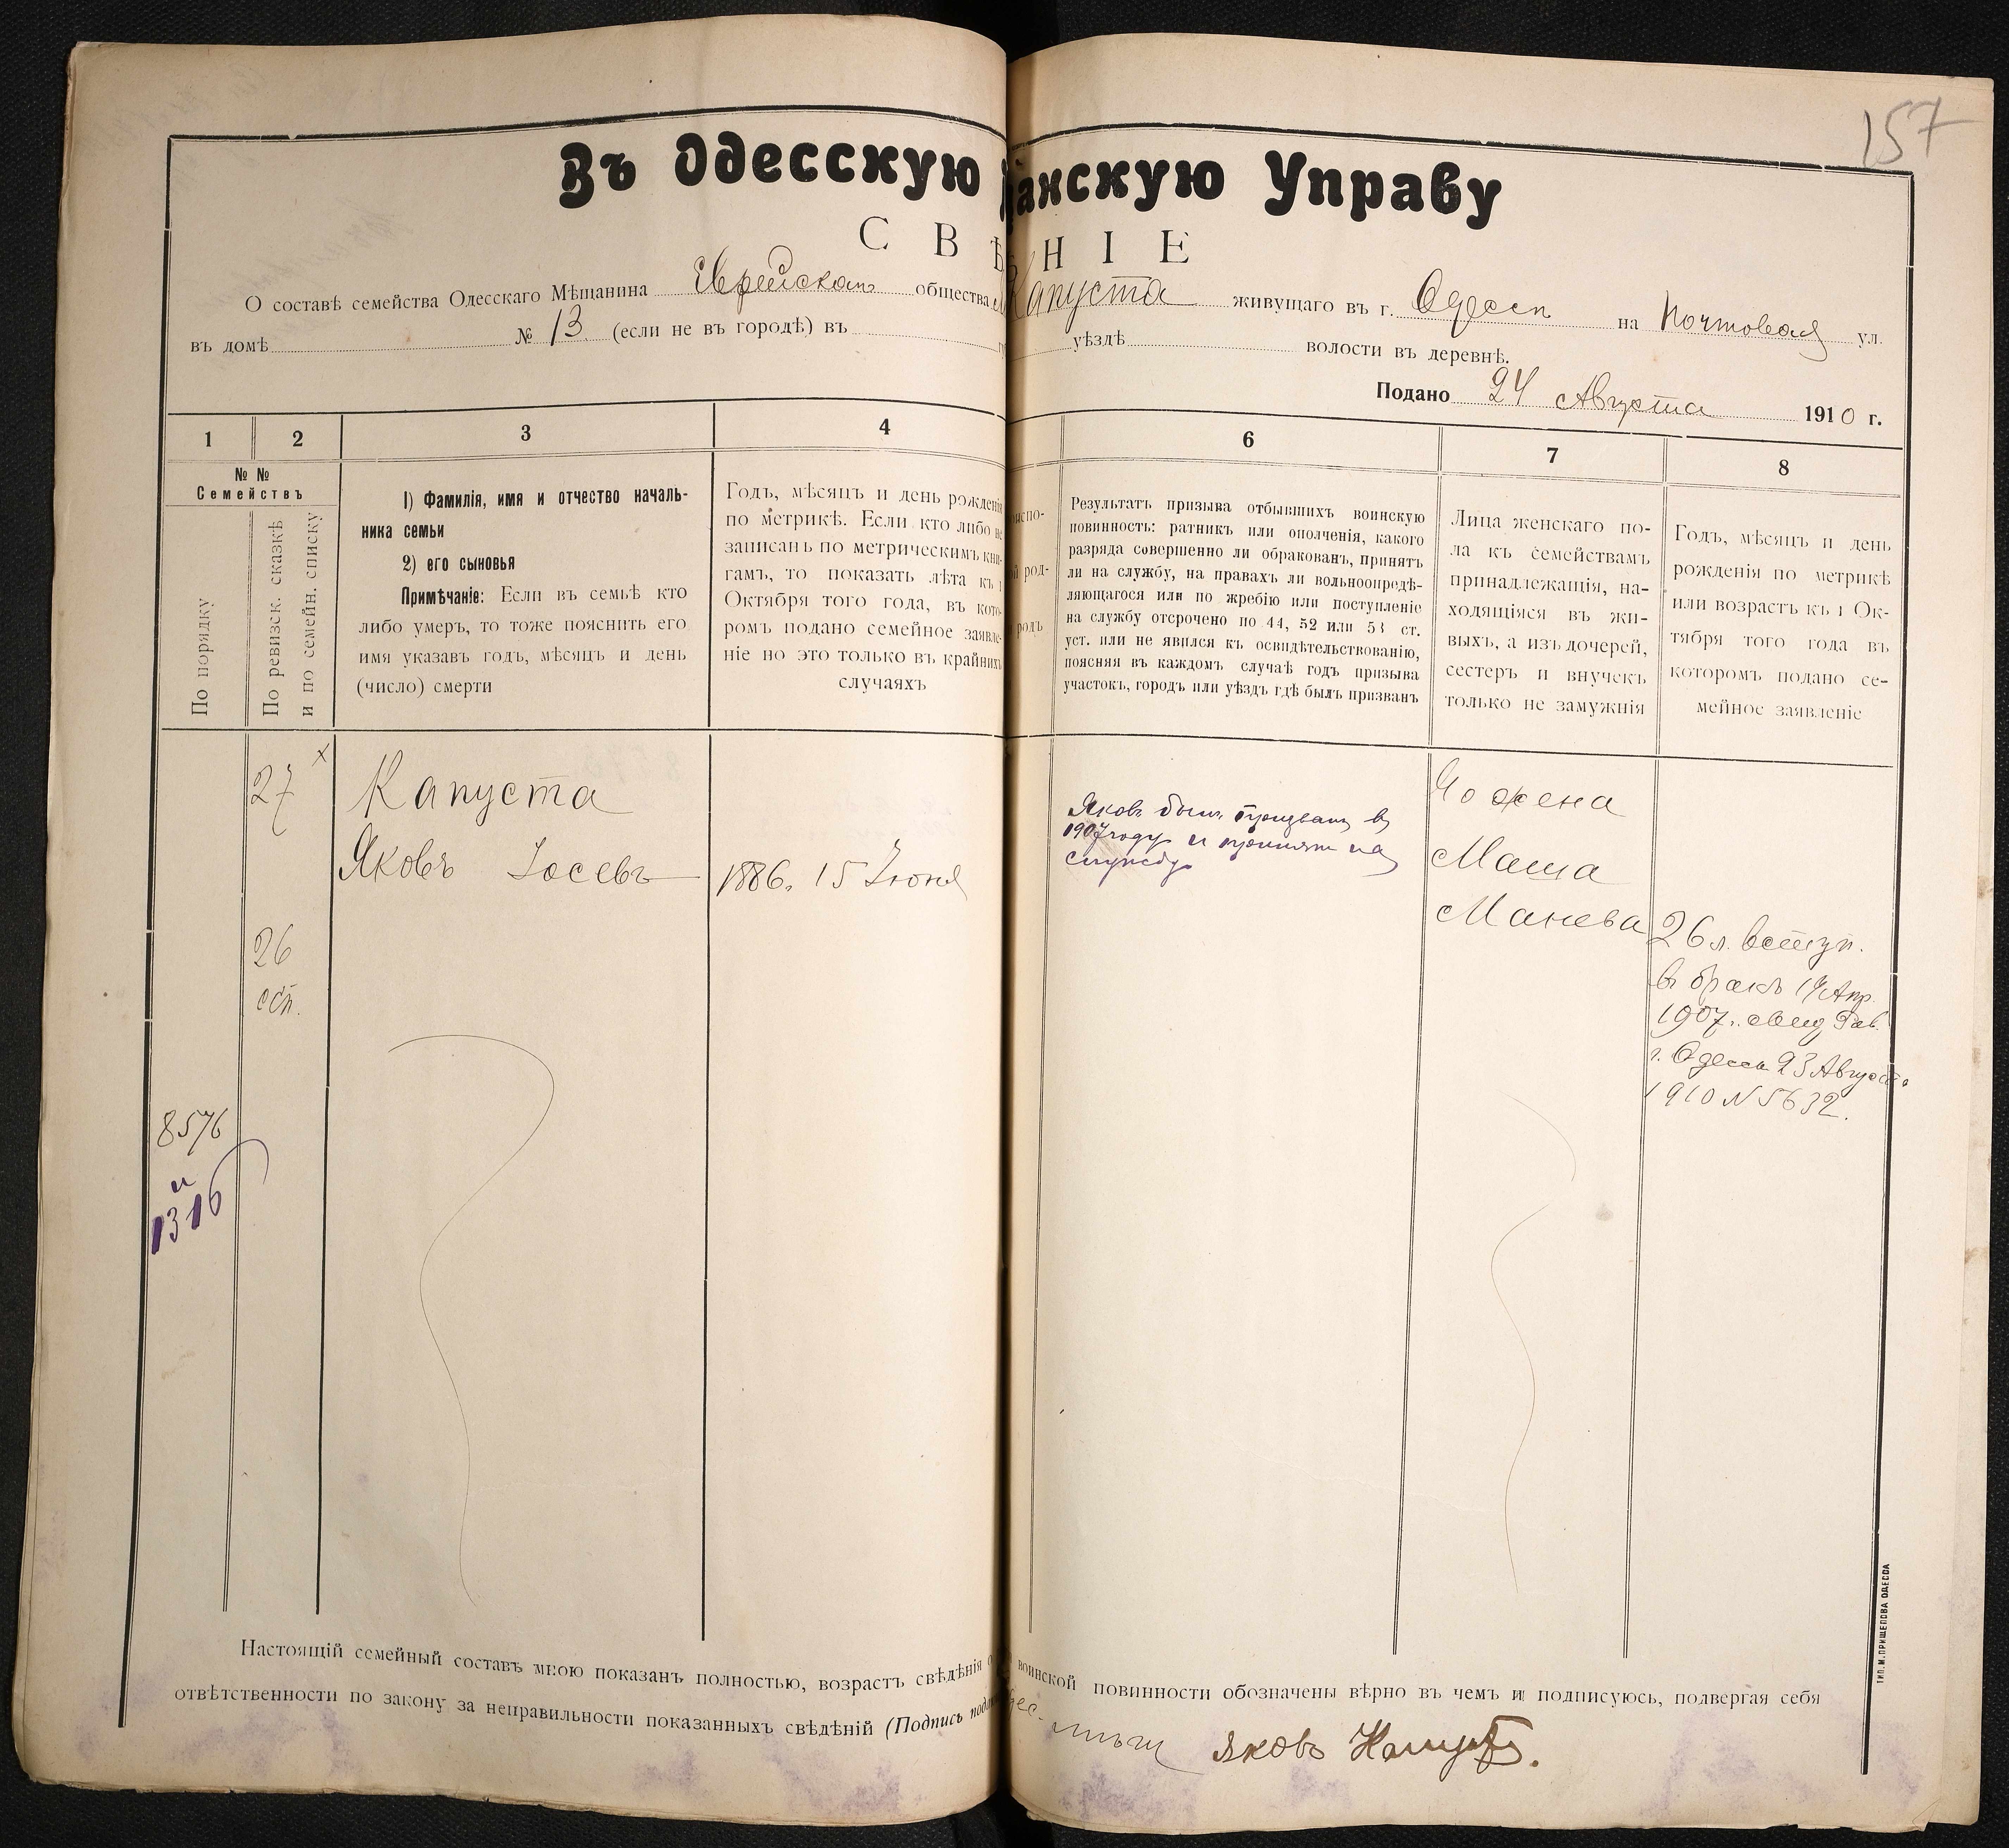 157
Въ Одесскую щанскую Управу
СВѢ НІЕ
О составѣ семейства Одесскаго Мѣщанина Еврейскаго общества Капуста живущаго въ г. Одессѣ на Почтовая ул.
въ домѣ № 13. (если не въ городѣ) въ уѣздѣ волости въ деревнѣ.
Подано 24 Августа 1910 г.
1 2 3 4 6 7 8
№ №
Семействъ
По порядку
По ревизск. сказкѣ
и по семейн. списку
1) Фамилія, имя и отчество началь-
ника семьи
2) его сыновья
Примѣчаніе: Если въ семьѣ кто
либо умеръ, то тоже пояснить его
имя указавъ годъ, мѣсяцъ и день
(число) смерти
Годъ, мѣсяцъ и день рожденія
по метрикѣ. Если кто либо не
записанъ по метрическимъ кни-
гамъ, то показать лѣта къ 1
Октября того года, въ кото-
ромъ подано семейное заявле-
ніе но это только въ крайнихъ
случаяхъ
Результатъ призыва отбывшихъ воинскую
повинность: ратникъ или ополченія, какого
разряда совершенно ли обракованъ, принятъ
ли на службу, на правахъ ли вольноопредѣ-
ляющагося или по жребію или поступленіе
на службу отсрочено по 44, 52 или 53 ст.
уст. или не явился къ освидѣтельствованію,
поясняя въ каждомъ случаѣ годъ призыва
участокъ, городъ или уѣздъ гдѣ былъ призванъ
Лица женскаго по-
ла къ семействамъ
принадлежащія, на-
ходящіяся въ жи-
выхъ, а изъ дочерей,
сестеръ и внучекъ
только не замужнія
Годъ, мѣсяцъ и день
рожденія по метрикѣ
или возрастъ къ 1 Ок-
тября того года въ
которомъ подано се-
мейное заявленіе
27 x
Капуста
Яковъ Іосевъ
1886. 15 Іюня
Яковъ былъ призванъ в
1907 году и принятъ на
службу
жена
Маша
Манева
26 л. вступ.
въ бракъ 14 Апр.
1907 г. свид Рав.
г. Одессы 23 Августа
1910 N 5632.
26
8576
и
1316
Настоящій семейный составъ мною показанъ полностью, возрастъ свѣдѣнія о воинской повинности обозначены вѣрно въ чемъ и подписуюсь, подвергая себя
отвѣтственности по закону за неправильности показанныхъ свѣдѣній (Подпись
Яковъ Капуста.
ТИП. М. ПРИЩЕПОВА ОДЕССА